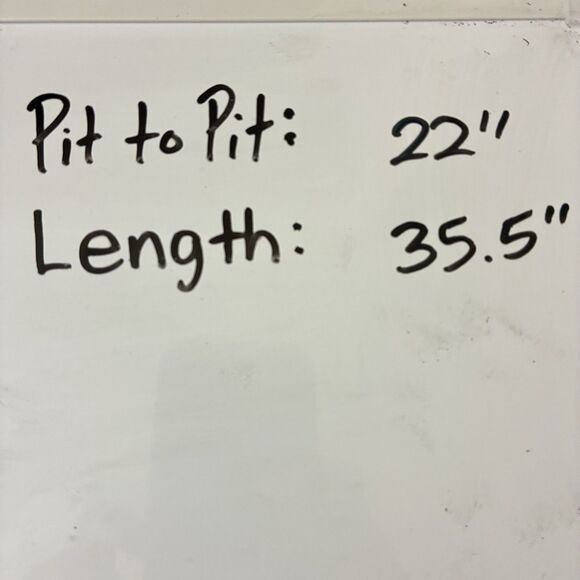 Pit to Pit: 22"
Length: 35.5"